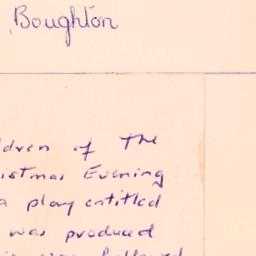 Boughton
dren of The
istmas Evening
a play entitled
was produced